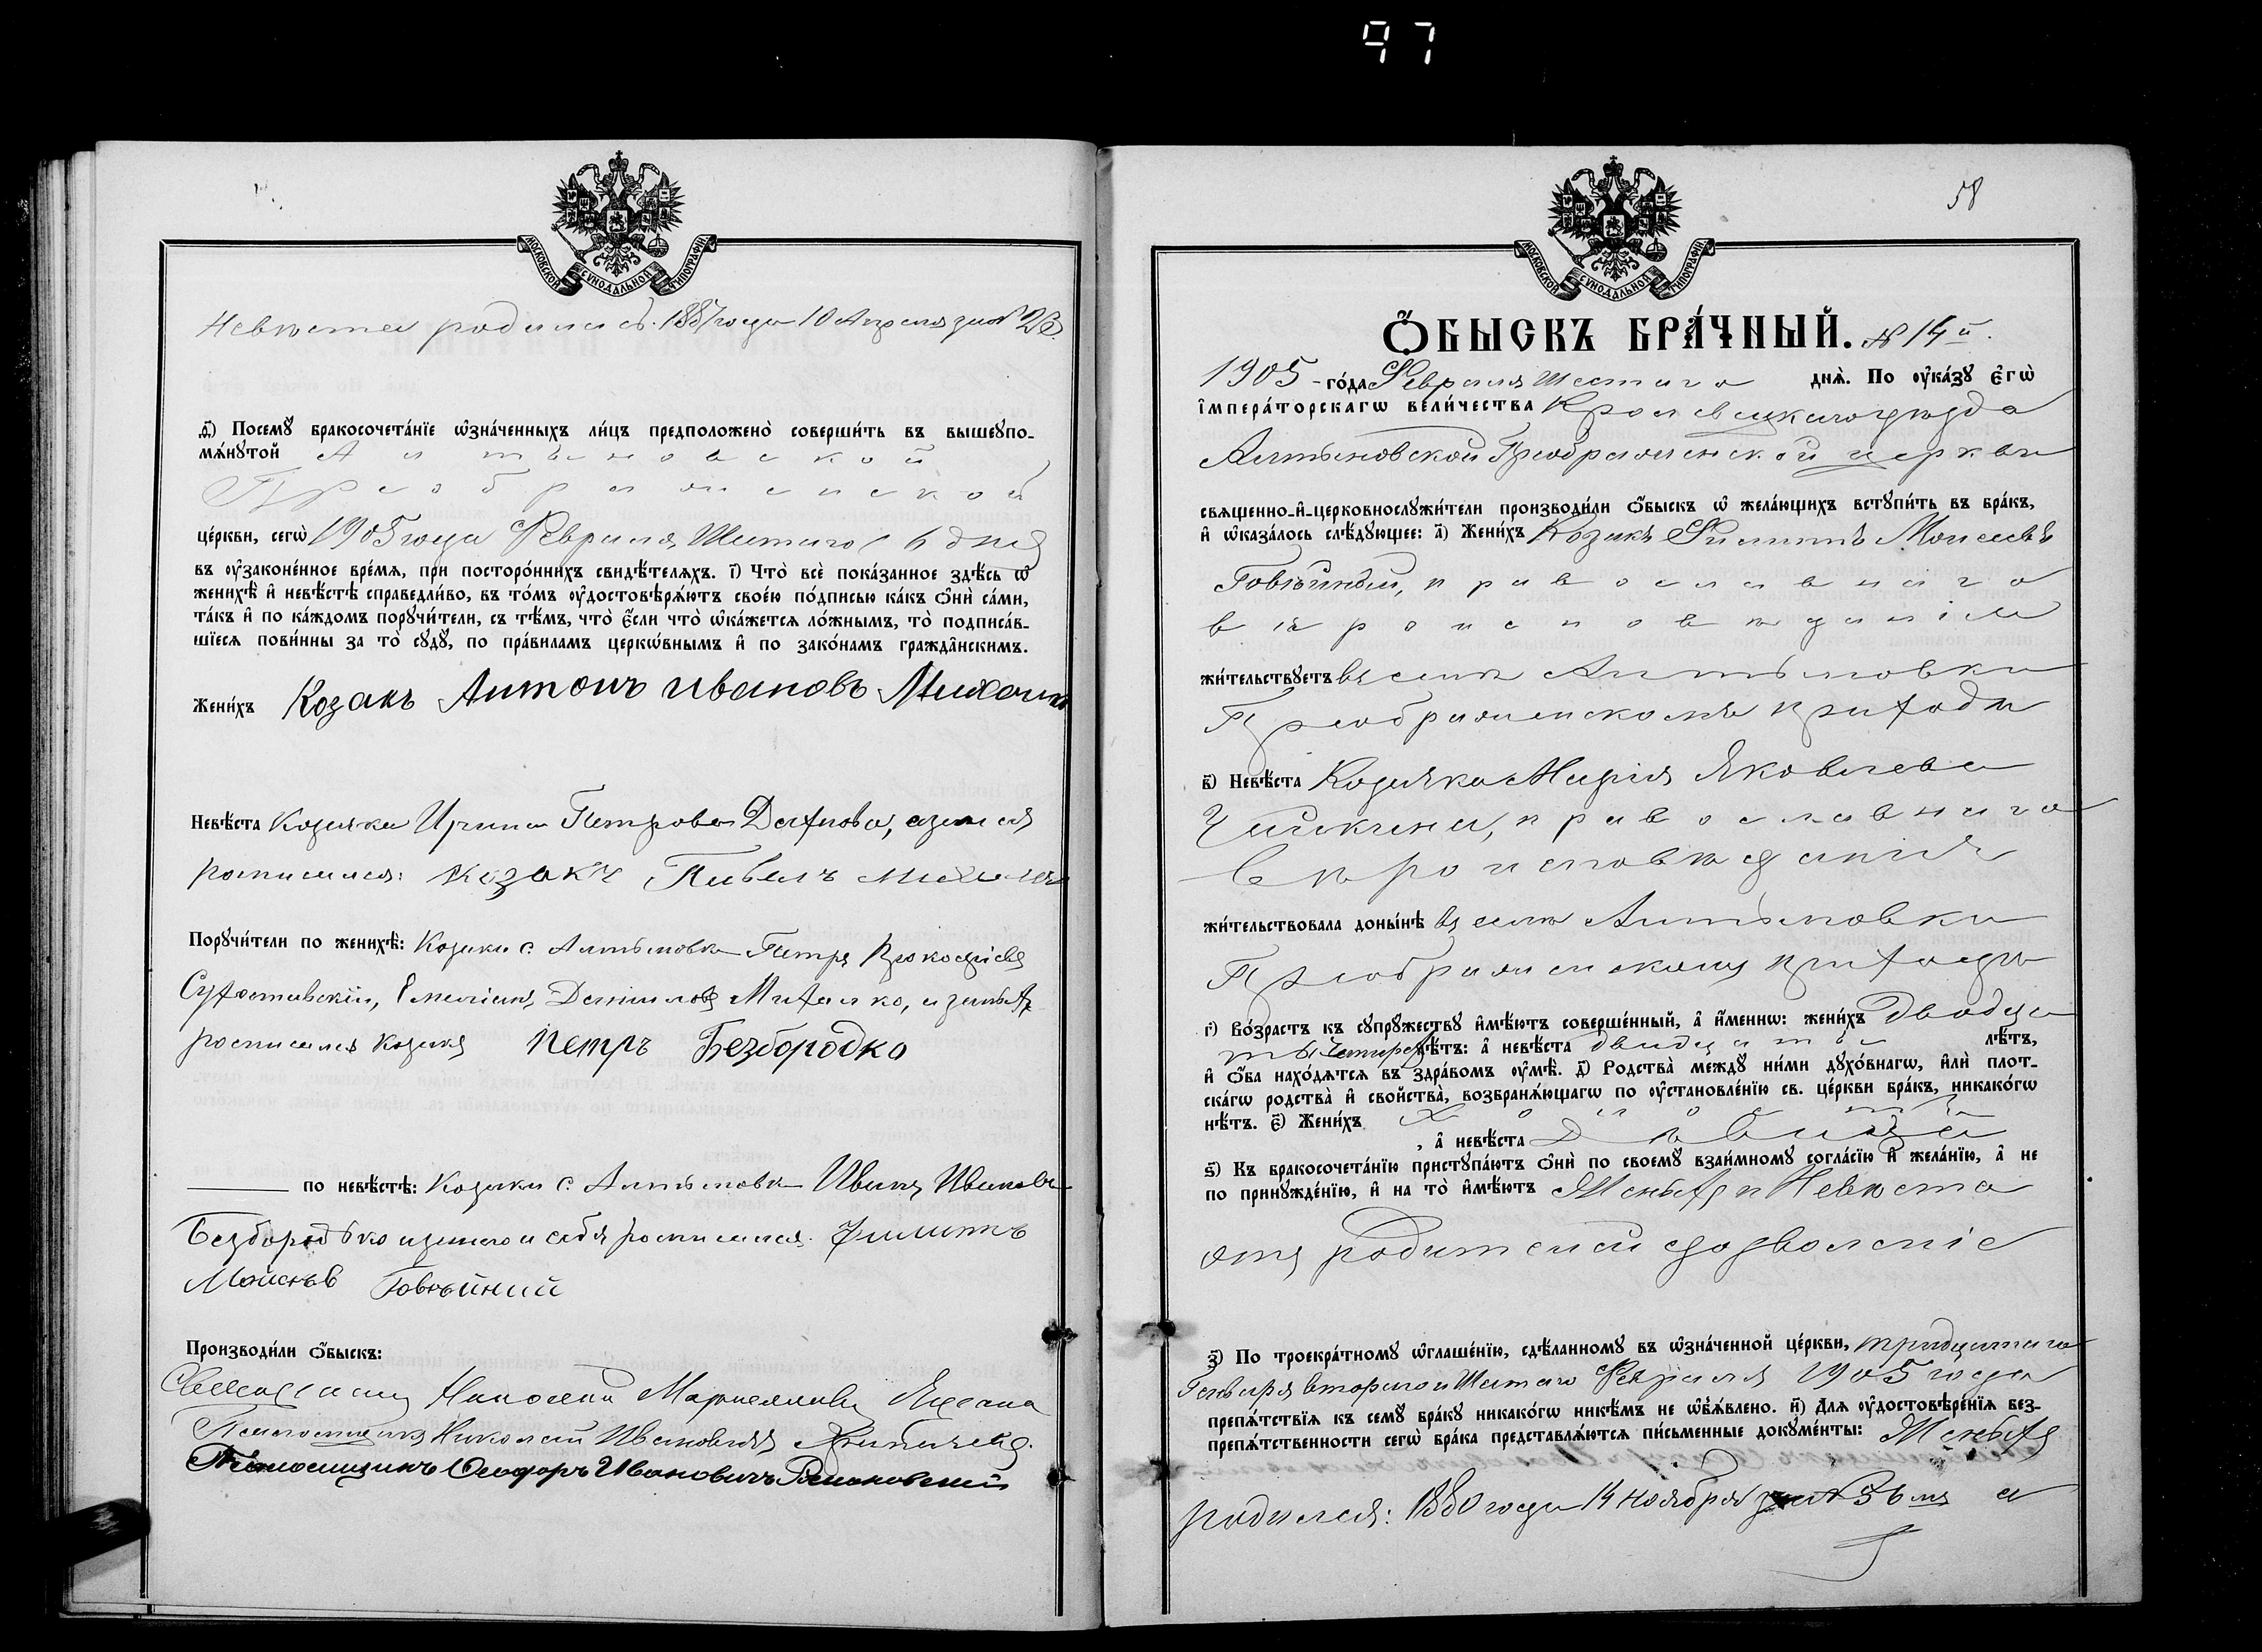 97
МОСКОВСКОЙ СѴНОДАЛЬНОЙ ТИПОГРАФІИ
Невѣста родилась 1887 года 10 Апреля
д҃) Посемꙋ бракосочета́нїе ѡ҆зна́ченныхъ ли́цъ предположено̀ соверши́ть въ вышеꙋпо-
мѧ́нꙋтой Алтыновской
Преображенской
це́ркви, сегѡ̀ 1905 года Февраля Шестаго 6 дня
въ ᲂу҆законе́нное вре́мѧ, при посторо́ннихъ свидѣ́телѧхъ. і҃) Что̀ всѐ пока́занное здѣ́сь ѡ҆
женихѣ̀ и҆ невѣ́стѣ справедли́во, въ то́мъ ᲂу҆достовѣрѧ́ютъ свое́ю по́дписью ка́къ ѻ҆нѝ са́ми,
та́къ и҆ по ка́ждомъ порꙋчи́тели, съ тѣ́мъ, что̀ є҆́сли что̀ ѡ҆ка́жетсѧ ло́жнымъ, то̀ подписа́в-
шїесѧ пови́нны за то̀ сꙋдꙋ̀, по пра́виламъ церко́внымъ и҆ по зако́намъ гражда́нскимъ.
Жени́хъ Козакъ Антонъ Ивановъ
Невѣ́ста Козачка Ирина Петрова
росписался: козакъ Павелъ
Порꙋчи́тели по женихѣ̀: Козаки с. Алтыновки Петръ Прокофіевъ
Емеліанъ Даниловъ Михалко, и за нихъ
росписался козакъ Петръ Безбородко
по невѣ́стѣ: Козаки с. Алтыновки Иванъ Ивановъ
Безбородько и за него и себя росписался Филиппъ
Мойсѣевъ Говѣйний
Производи́ли ѻ҆́быскъ:
Священникъ Николай
Псаломщикъ Николай Ивановичъ
Псаломщикъ Ѳеодоръ Ивановичъ
58
МОСКОВСКОЙ СѴНОДАЛЬНОЙ ТИПОГРАФІИ
Ѻ҆́БЫСКЪ БРА́ЧНЫЙ. № 14й.
1905 - го́да Февраля Шестаго днѧ̀. По ᲂу҆ка́зꙋ є҆гѡ̀
і҆мпера́торскагѡ вели́чества Кролевецкаго уѣзда
Алтыновской Преображенской церкви
свѧщенно-и҆-церковнослꙋжи́тели производи́ли ѻ҆́быскъ ѡ҆ жела́ющихъ встꙋпи́ть въ бра́къ,
и҆ ѡ҆каза́лось слѣ́дꙋющее: а҃) Жени́хъ Козакъ Филиппъ Моисеевъ
Говѣйный, православнаго
вѣроисповѣданія
жи́тельствꙋетъ въ селѣ Алтыновки
Преображенскомъ приходѣ
в҃) Невѣ́ста Козачка Марія Яковлева
православнаго
вѣроисповѣданія
жи́тельствовала доны́нѣ въ селѣ Алтыновки
Преображенскомъ приходѣ
г҃) Во́зрастъ къ сꙋпрꙋ́жествꙋ и҆мѣ́ютъ соверше́нный, а҆ и҆́меннѡ: жени́хъ Двадца
ть четыре лѣ́тъ: а҆ невѣ́ста двадцать лѣ́тъ,
и҆ ѻ҆́ба нахо́дѧтсѧ въ здра́вомъ ᲂу҆мѣ̀. д҃) Родства̀ междꙋ ни́ми дꙋхо́внагѡ, и҆лѝ плот-
ска́гѡ родства̀ и҆ свойства̀, возбранѧ́ющагѡ по ᲂу҆становле́нїю св. це́ркви бра́къ, никако́гѡ
нѣ́тъ. є҃) Жени́хъ Холостъ
, а҆ невѣ́ста Дѣвица
ѕ҃) Къ бракосочета́нїю пристꙋпа́ютъ ѻ҆нѝ по своемꙋ̀ взаи́мномꙋ согла́сїю и҆ жела́нїю, а҆ не
по принꙋжде́нїю, и҆ на то̀ и҆мѣ́ютъ Женихъ и Невѣста
отъ родителей дозволеніе
з҃) По троекра́тномꙋ ѡ҆глаше́нїю, сдѣ́ланномꙋ въ ѡ҆зна́ченной це́ркви, тридцатаго
Генваря втораго и Шестаго Февраля 1905 года
препѧ́тствїѧ къ семꙋ̀ бра́кꙋ никако́гѡ никѣ́мъ не ѡ҆б̾ѧ́влено. и҃) Длѧ ᲂу҆достовѣре́нїѧ без-
препѧ́тственности сегѡ̀ бра́ка представлѧ́ютсѧ пи́сьменные докꙋме́нты: Женихъ
родился: 1880 года 14 ноября а